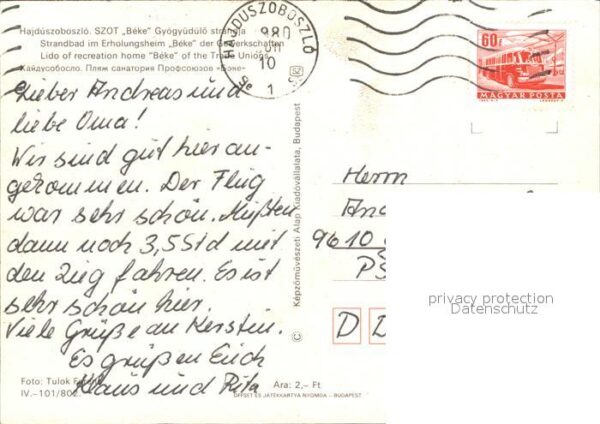 Hajdúszoboszló. SZOT „Béke” Gyógyüdülő strandja
Strandbad im Erholungsheim „Béke” der Gewerkschaften
Lido of recreation home "Béke" of the Trade Unions
Хайдусобосло. Пляж санатория Профсоюзов «Бэке»
HAJDÚSZOBOSZLÓ
980
10
1
60f
MAGYAR POSTA
Lieber Andreas und
liebe Oma!
Wir sind gut hier an-
gekommen. Der Flug
war sehr schön. Mußten
dann noch 3,5 Std mit
den Zug fahren. Es ist
sehr schön hier.
Viele Grüße an Kerstin.
Es grüßen Euch
Klaus und Rita
Képzőművészeti Alap Kiadóvállalata, Budapest
Herrn
And
9610
D D
privacy protection
Datenschutz
Foto: Tulok
IV.–101/802.
Ára: 2,– Ft
OFFSET ÉS JÁTÉKKÁRTYA NYOMDA – BUDAPEST